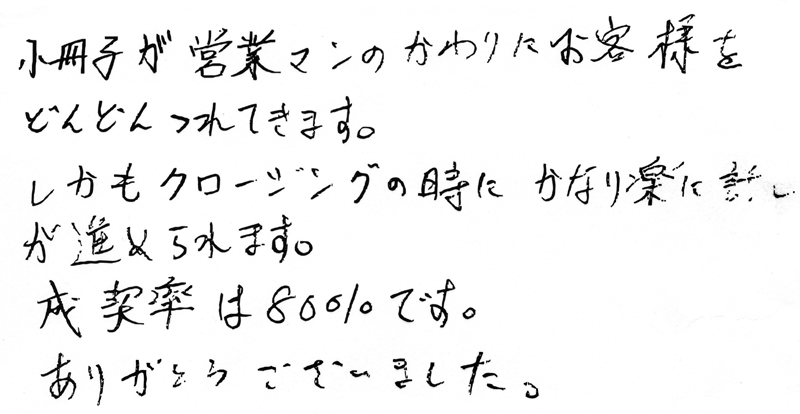 小冊子が営業マンのかわりにお客様を
どんどんつれてきます。
しかもクロージングの時にかなり楽に話し
が進められます。
成契率は80%です。
ありがとうございました。